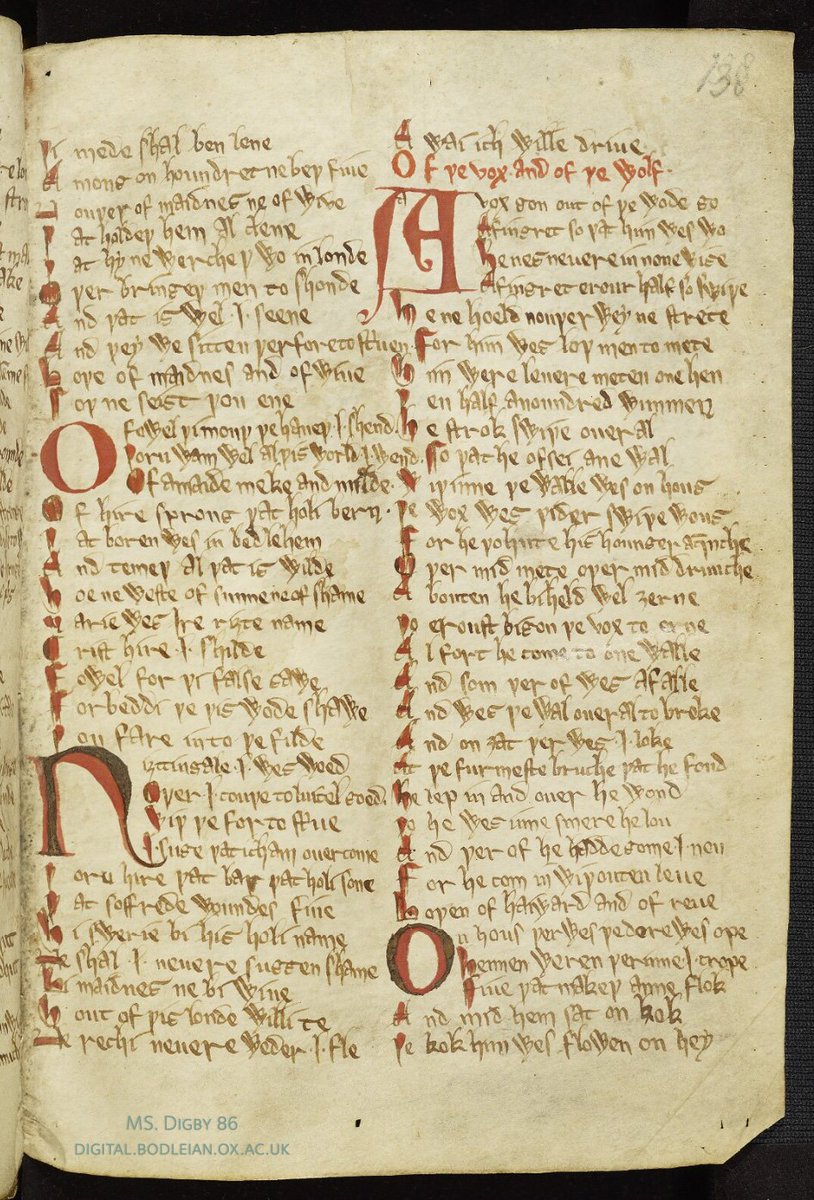 138
Hi mede shal ben lene
Among on houndret ne beþ fiue
Nouþer of maidnes ne of wiue
Þat holdeþ hem al clene
Þat hy ne wercheþ wo in londe
Oþer bringeþ men to shonde
And þat is wel i seene
And þey we sitten þerfore to striuen
Boþe of maidnes and of wiue
Soþ ne seist þou ene
O fowel þi mouþ þe haueþ .I. shend
Þoru wam wel al þis world .I. wend.
Of a maide meke and milde
Of hire sprong þat holi bern
Þat boren wes in bedlehem
And temeþ al þat is wilde
Hoe ne weste of sunne ne of shame
Marie wes Ire riȝte name
Crist hire .I. shilde
Fowel for þi false sawe
Forbeddi þe þis wode shawe
Þou fare into þe filde
Niȝtingale .I. wes woed
Oþer .I. couþe to luitel goed
Wiþ þe for to striue
I suge þat icham ouercome
Þoru hire þat bar þat holi sone
Þat soffrede woundes fiue
Hi swerie bi his holi name
Ne shal .I. neuere suggen shame
Bi maidnes ne bi wiue
Hout of þis londe willi te
Ne rechi neuere weder .I. fle
Awai ich wille driue
Of þe vox and of þe wolf.
A vox gon out of þe wode go
Afingret so þat him wes wo
He nes neuere in none wise
Afingret erour half so swiþe
He ne hoeld nouþer wey ne strete
For him wes loþ men to mete
Him were leuere meten one hen
Þen half an oundred wimmen
He strok swiþe oueral
So þat he ofsei ane wal
Wiþinne þe walle wes on hous
Þe wox wes þider swiþe wous
For he þohute his hounger aquenche
Oþer mid mete oþer mid drunche
Abouten he biheld wel ȝerne
Þo eroust bigon þe vox to erne
Al fort he come to one walle
And som þerof wes afalle
And wes þe wal oueral to broke
And on ȝat þer wes .I. loke
At þe furmeste bruche þat he fond
He lep in and ouer he wond
Þo he wes inne smere he lou
And þer of he hadde gome .I. nou
For he com in wiþouten leue
Boþen of haiward and of reue
On hous þer wes þe dore wes ope
Hennen weren þerinne .I. crope
Fiue þat makeþ anne flok
And mid hem sat on kok
Þe kok him wes flowen on hey
MS. DIGBY 86
DIGITAL.BODLEIAN.OX.AC.UK